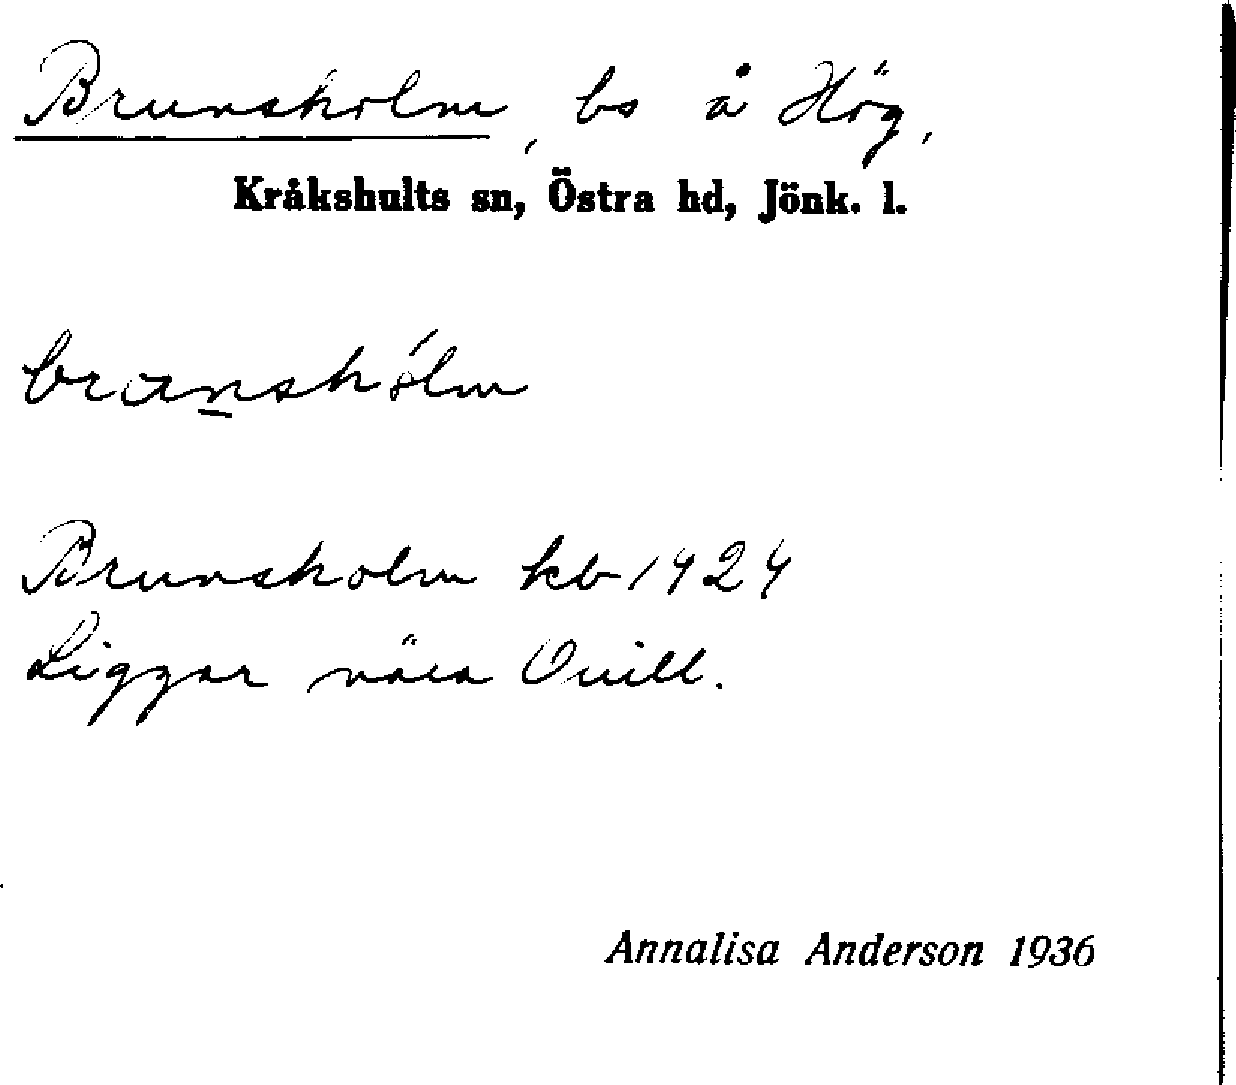 Brunsholm, bs å Hög,
Kråkshults sn, Östra hd, Jönk. l.
branshólm
Brunsholm kb 1924
Liggar nära Quill.
Annalisa Anderson 1936